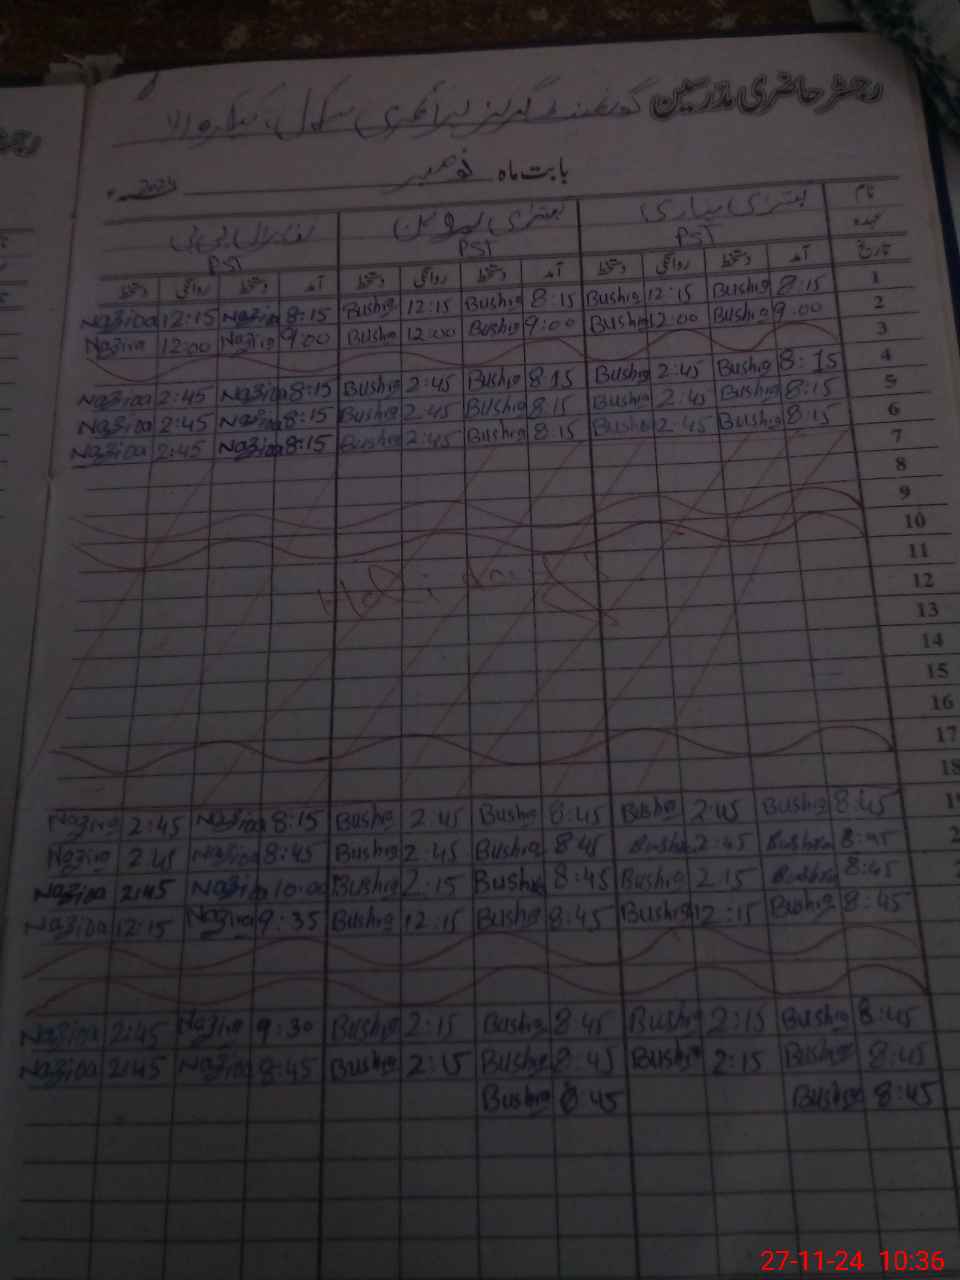 رجسٹر حاضری مدرسین گورنمنٹ گرلز پرائمری سکول
بابت ماہ نومبر 2024ء
نام بشریٰ بشریٰ
عہدہ PST PST PST
تاریخ آمد دستخط روانگی دستخط آمد دستخط روانگی دستخط آمد دستخط روانگی دستخط
1 8:15 Bushra 12:15 Bushra 8:15 Bushra 12:15 Bushra 8:15 Nazira 12:15 Nazira
2 9:00 Bushra 12:00 Bushra 9:00 Bushra 12:00 Bushra 9:00 Nazira 12:00 Nazira
3
4 8:15 Bushra 2:45 Bushra 8:15 Bushra 2:45 Bushra 8:15 Nazira 2:45 Nazira
5 8:15 Bushra 2:45 Bushra 8:15 Bushra 2:45 Bushra 8:15 Nazira 2:45 Nazira
6 8:15 Bushra 2:45 Bushra 8:15 Bushra 2:45 Bushra 8:15 Nazira 2:45 Nazira
7
8
9
10
11
12
13
14
15
16
17
18
8:45 Bushra 2:45 Bushra 8:45 Bushra 2:45 Bushra 8:15 Nazira 2:45 Nazira
8:45 Bushra 2:45 Bushra 8:45 Bushra 2:45 Bushra 8:45 Nazira 2:45 Nazira
8:45 Bushra 2:15 Bushra 8:45 Bushra 2:15 Bushra 10:00 Nazira 2:45 Nazira
8:45 Bushra 12:15 Bushra 8:45 Bushra 12:15 Bushra 9:35 Nazira 12:15 Nazira
8:45 Bushra 2:15 Bushra 8:45 Bushra 2:15 Bushra 9:30 Nazira 2:45 Nazira
8:45 Bushra 2:15 Bushra 8:45 Bushra 2:15 Bushra 8:45 Nazira 2:45 Nazira
8:45 Bushra 8:45 Bushra
27-11-24 10:36